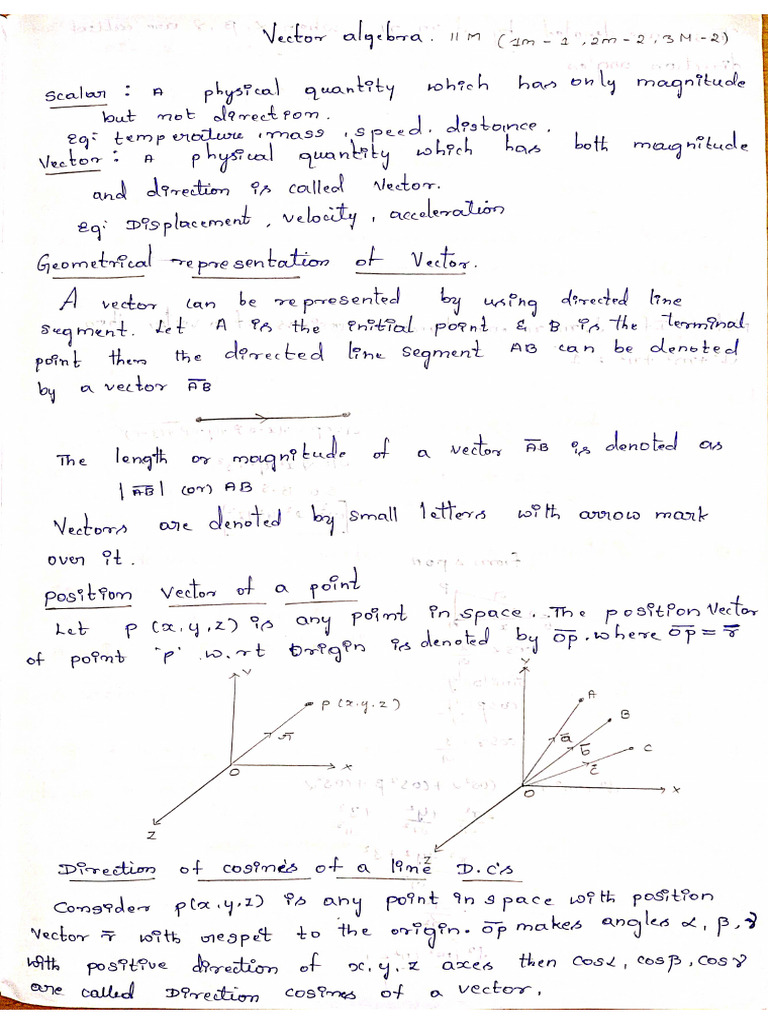 Vector algebra. 11M (1m-1, 2m-2, 3M-2)
Scalar : A physical quantity which has only magnitude
but not direction.
Eg: temperature, mass, speed, distance.
Vector : A physical quantity which has both magnitude
and direction is called Vector.
Eg: Displacement, velocity, acceleration
Geometrical representation of Vector.
A vector can be represented by using directed line
segment. Let A is the initial point & B is the terminal
point then the directed line segment AB can be denoted
by a vector A̅B̅
The length or magnitude of a vector A̅B̅ is denoted as
|A̅B̅| (or) AB
Vectors are denoted by small letters with arrow mark
over it.
Position Vector of a point
Let P(x,y,z) is any point in space. The position Vector
of point 'P' w.r.t Origin is denoted by O̅P̅. where O̅P̅ = r̅
Y
P(x,y,z)
r̅
O
X
Z
Y
A
B
C
a̅
b̅
c̅
O
X
Z
Direction of cosines of a line D.C's
Consider P(x,y,z) is any point in space with position
Vector r̅ with respet to the origin. O̅P̅ makes angles α, β, γ
with positive direction of x, y, z axes then cosα, cosβ, cosγ
are called Direction cosines of a vector.